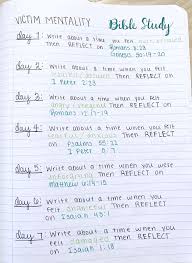 VICTIM MENTALITY Bible Study
day 1: Write about a time when you felt
then REFLECT on Romans 8:28
Genesis 50:19-20
day 2: Write about a time when you felt
Then REFLECT on
1 Peter 2:23
day 3: Write about a time when you felt
Then REFLECT on
Romans 12:17-19
day 4: Write about a time when you felt
Then REFLECT on
Psalms 55:22
1 Peter 5:7
day 5: Write about a time when you were
unforgiving Then REFLECT on
Matthew 6:14-15
day 6: Write about a time when you
felt Then REFLECT
on Isaiah 43:1
day 7: Write about a time when you
felt damaged Then REFLECT
on Isaiah